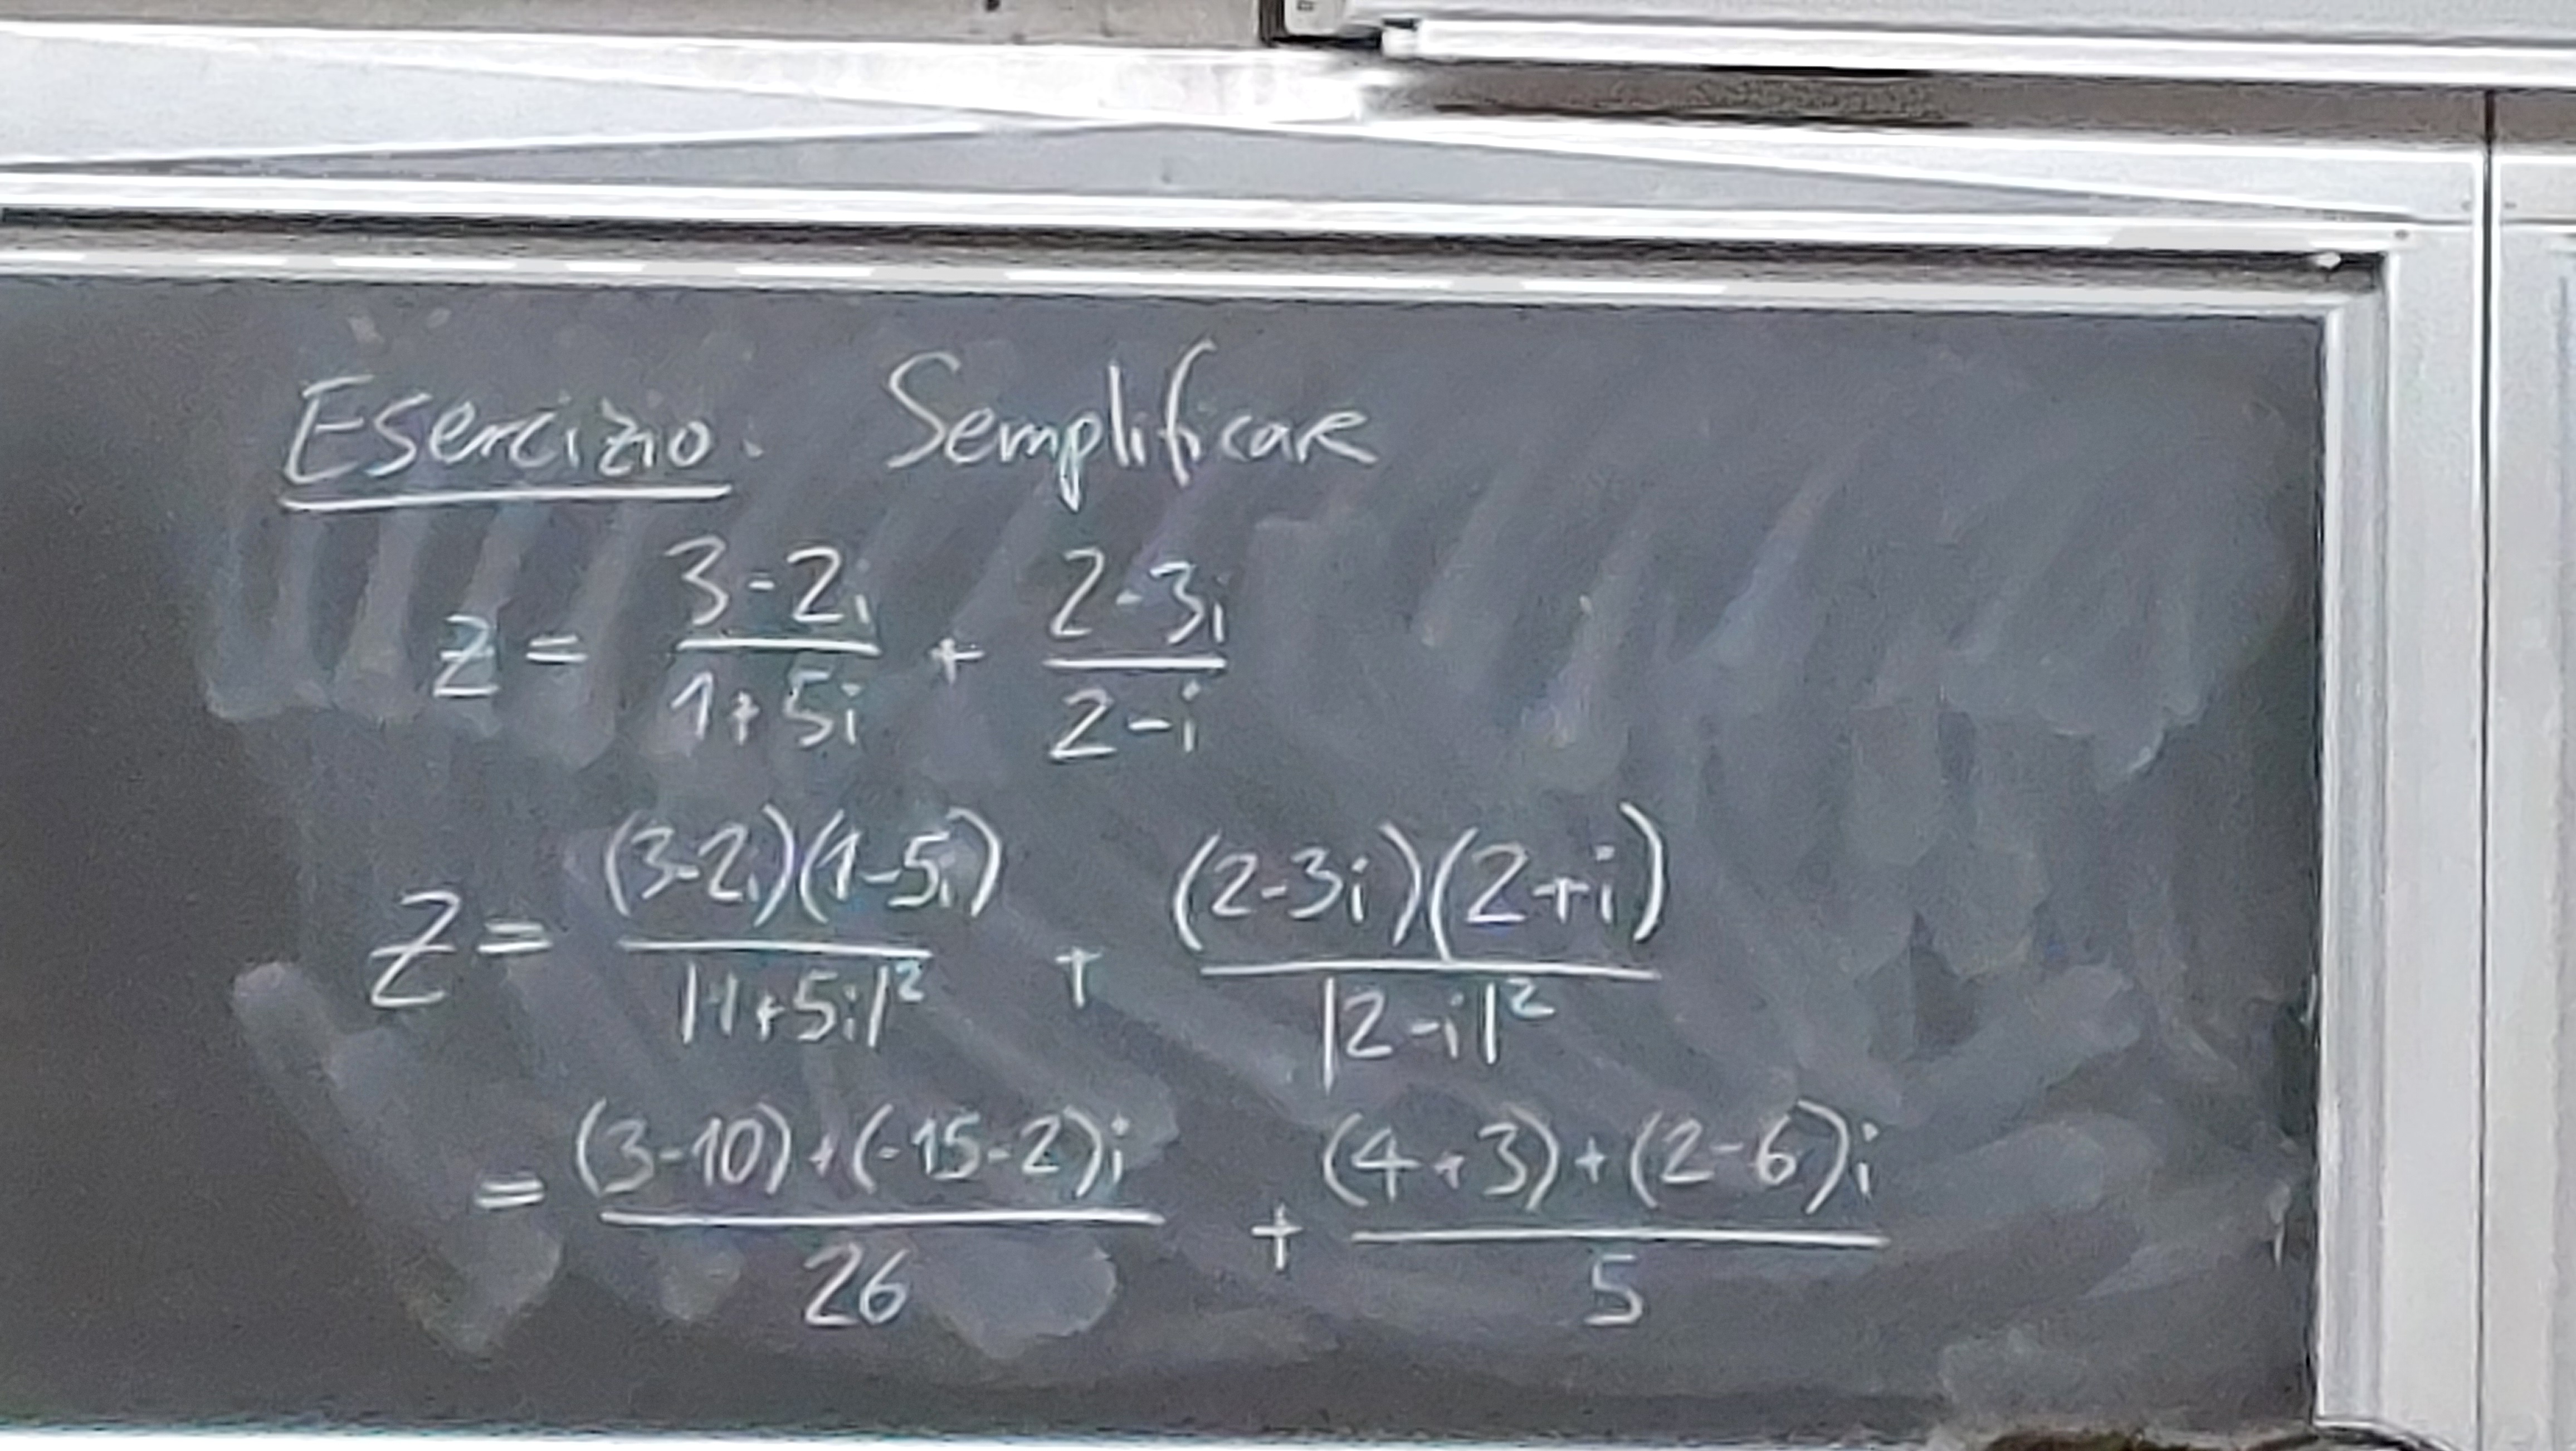 Esercizio. Semplificare
z = \frac{3-2i}{1+5i} + \frac{2-3i}{2-i}
z = \frac{(3-2i)(1-5i)}{|1+5i|^2} + \frac{(2-3i)(2+i)}{|2-i|^2}
= \frac{(3-10)+(-15-2)i}{26} + \frac{(4+3)+(2-6)i}{5}